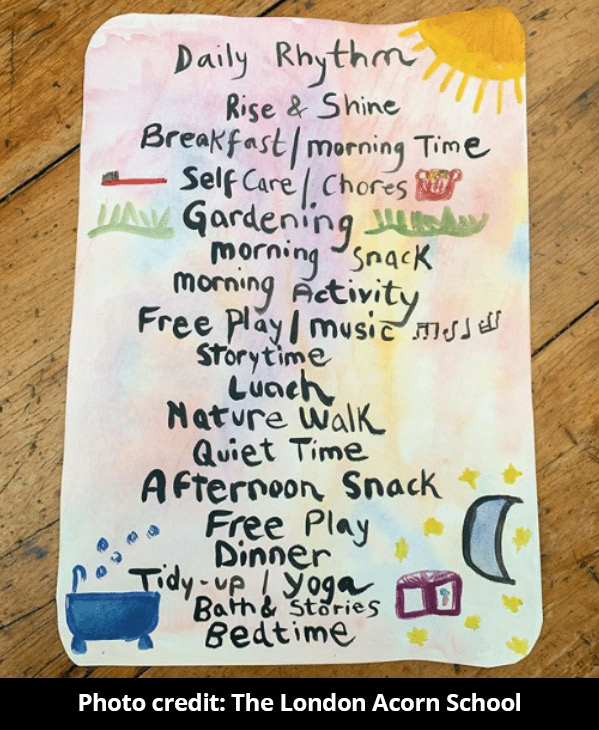 Daily Rhythm
Rise & Shine
Breakfast/morning Time
Self Care/Chores
Gardening
morning snack
morning Activity
Free Play/music
Storytime
Lunch
Nature Walk
Quiet Time
Afternoon Snack
Free Play
Dinner
Tidy-up / Yoga
Bath & Stories
Bedtime
Photo credit: The London Acorn School